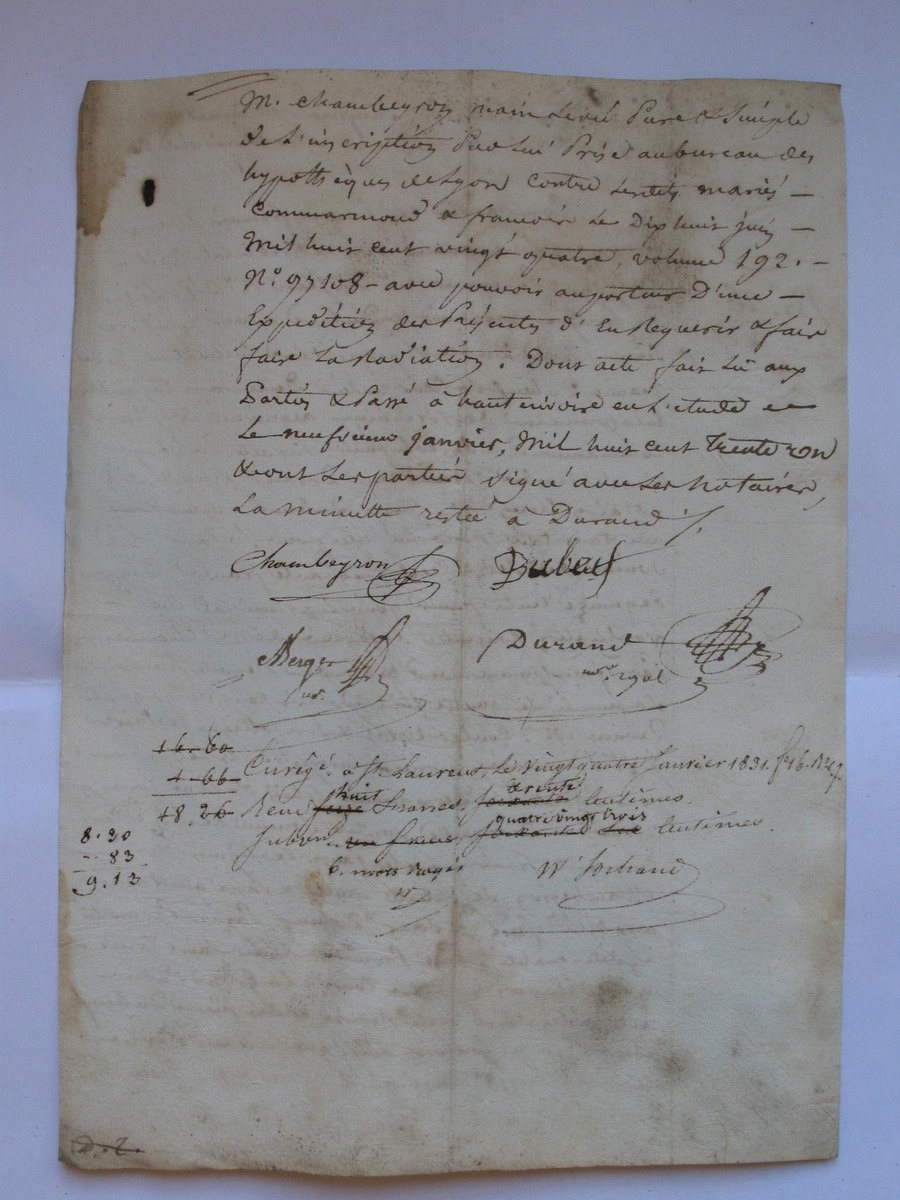 M. Chambeyron main levée Pure & Simple
de L'inscription Par Lui Prise au bureau des
hypothèques de Lyon contre Lesdits mariés —
Commarmond & francoise Le Dix huit juin —
Mil huit cent vingt quatre, volume 192. —
N.o 97108 — avec pouvoir au porteur D'une —
Expedition des Présentes d'En Requerir & faire
faire La Radiation. Dont acte fait Lu aux
Parties & Passé à en L'étude
Le neufvieme janvier, Mil huit cent trente un
& ont Les parties signé avec Les notaires,
La minute restée à Durand /.
Chambeyron Dubeuf
Berger Durand
nre. nre. royal
16-60
1-66 Enregé. à St. Laurent, Le vingt quatre Janvier 1831. fo. 16.
18,26 Recu seize huit francs, soixante trente Centimes,
8.30 Subvon. un franc, soixante six quatre vingt trois Centimes.
-. 83
9.13 6. mots Rayés
D. L.